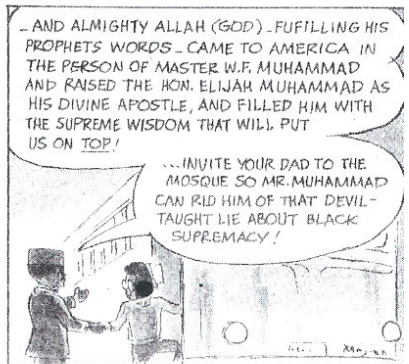 ...AND ALMIGHTY ALLAH (GOD)...FUFILLING HIS
PROPHETS WORDS...CAME TO AMERICA IN
THE PERSON OF MASTER W.F. MUHAMMAD
AND RAISED THE HON. ELIJAH MUHAMMAD AS
HIS DIVINE APOSTLE, AND FILLED HIM WITH
THE SUPREME WISDOM THAT WILL PUT
US ON TOP!
...INVITE YOUR DAD TO THE
MOSQUE SO MR. MUHAMMAD
CAN RID HIM OF THAT DEVIL-
TAUGHT LIE ABOUT BLACK
SUPREMACY!